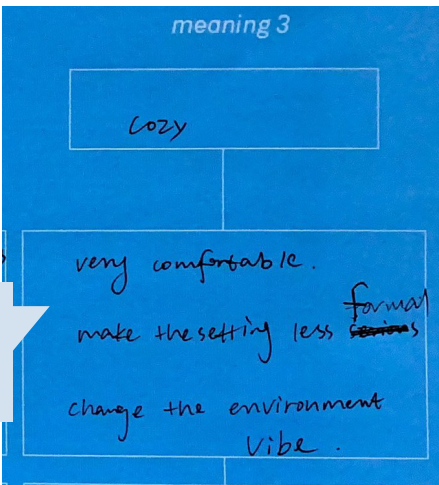 meaning 3
cozy
very comfortable.
make the setting less formal
change the environment
vibe.